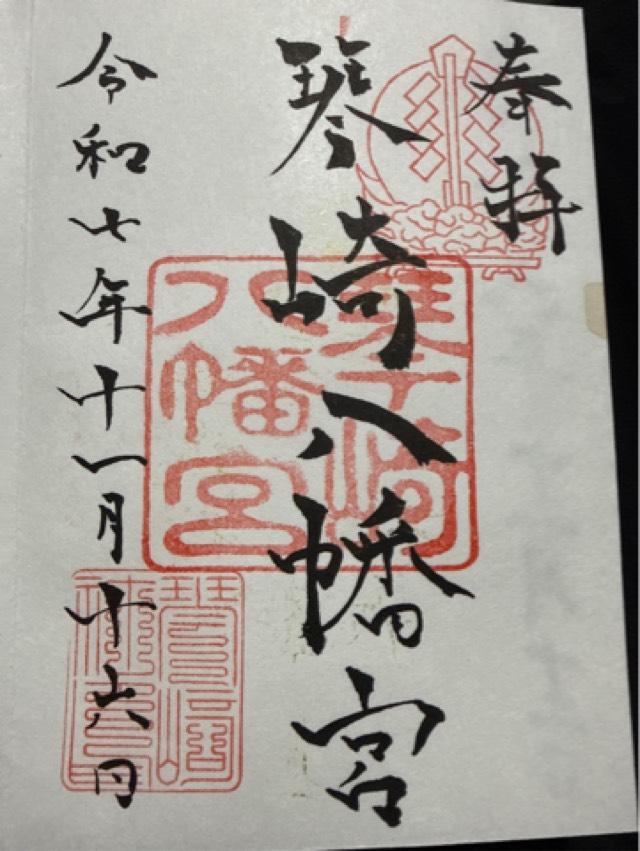 奉拝
琴崎八幡宮
八幡宮
令和七年十一月十六日